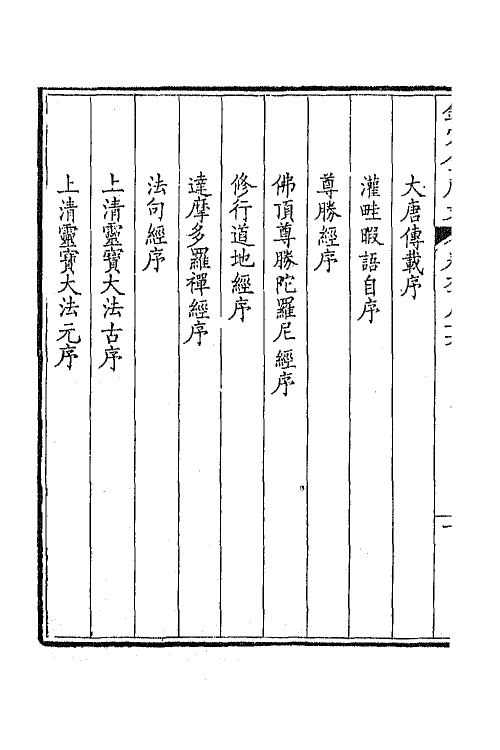 大唐傳載序
灌畦暇語自序
尊勝經序
佛頂尊勝陀羅尼經序
修行道地經序
達摩多羅禪經序
法句經序
上清靈寶大法古序
上清靈寶大法元序